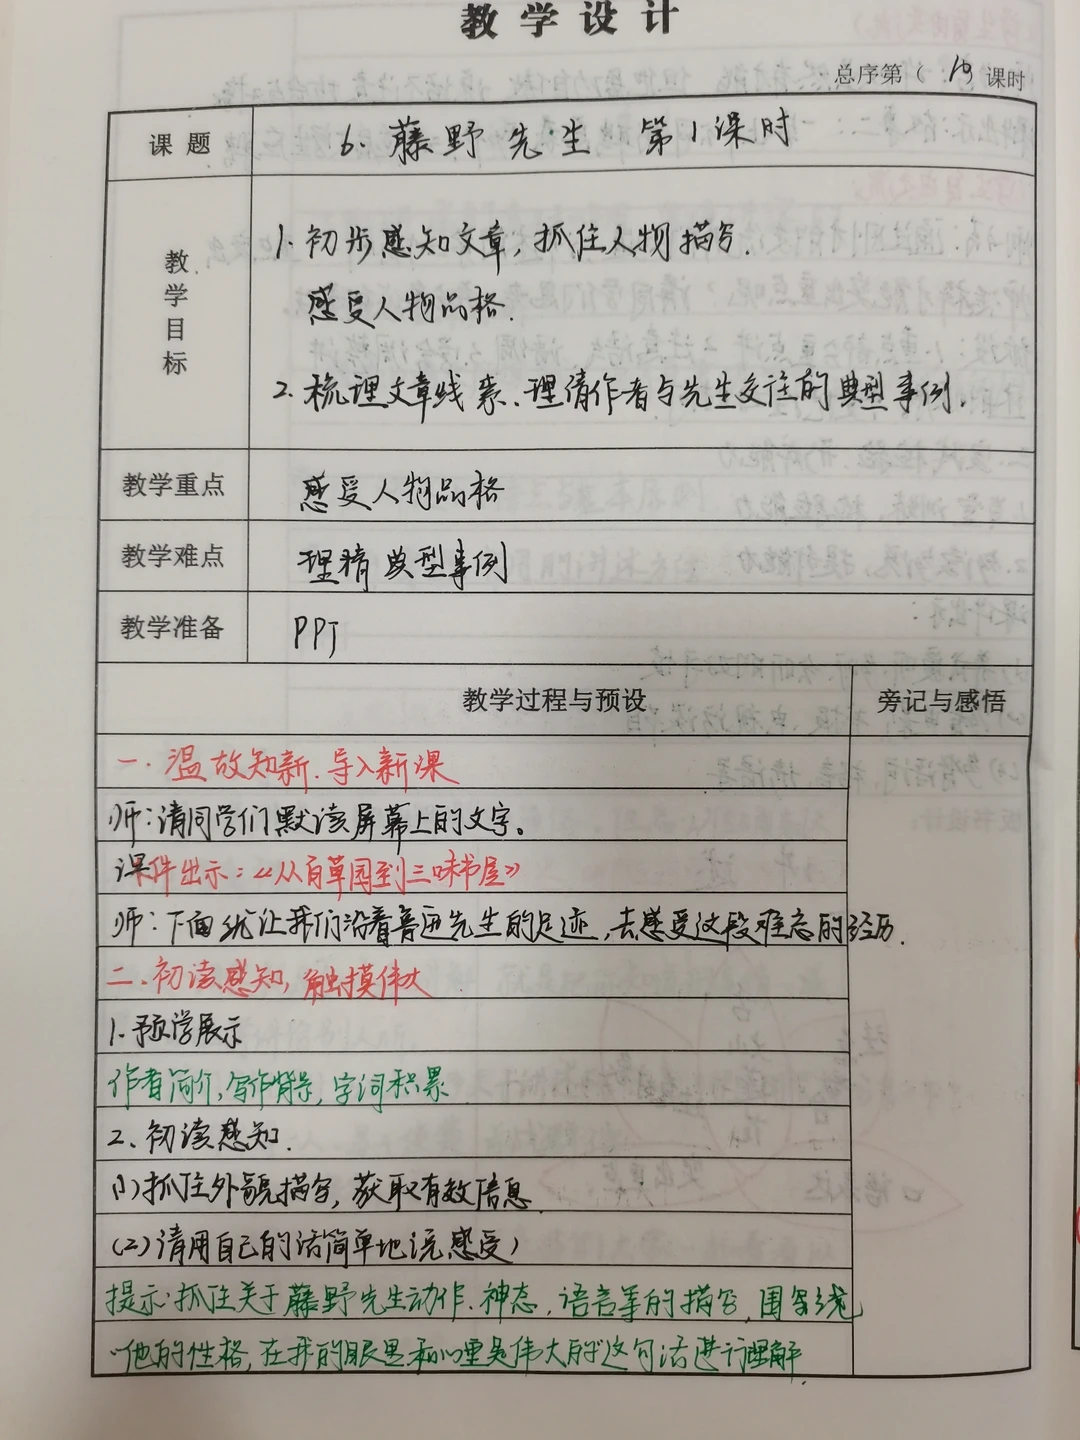 教学设计
总序第（19课时
课题
6. 藤野先生 第1课时
教学目标
1. 初步感知文章，抓住人物描写.
感受人物品格.
2. 梳理文章线索、理清作者与先生交往的典型事例.
教学重点
感受人物品格
教学难点
理精典型事例
教学准备
PPT
教学过程与预设
旁记与感悟
一. 温故知新. 导入新课
师：请同学们默读屏幕上的文字。
课件出示：《从百草园到三味书屋》
师：下面就让我们沿着鲁迅先生的足迹，去感受这段难忘的经历.
二、初读感知，触摸伟大
1. 预学展示
作者简介，写作背景，字词积累
2、初读感知.
(1)抓住外貌描写，获取有效信息
(2)请用自己的话简单地说感受)
提示：抓住关于藤野先生动作、神态，语言等的描写，围绕
“他的性格，在我的眼里和心里是伟大的”这句话进行理解